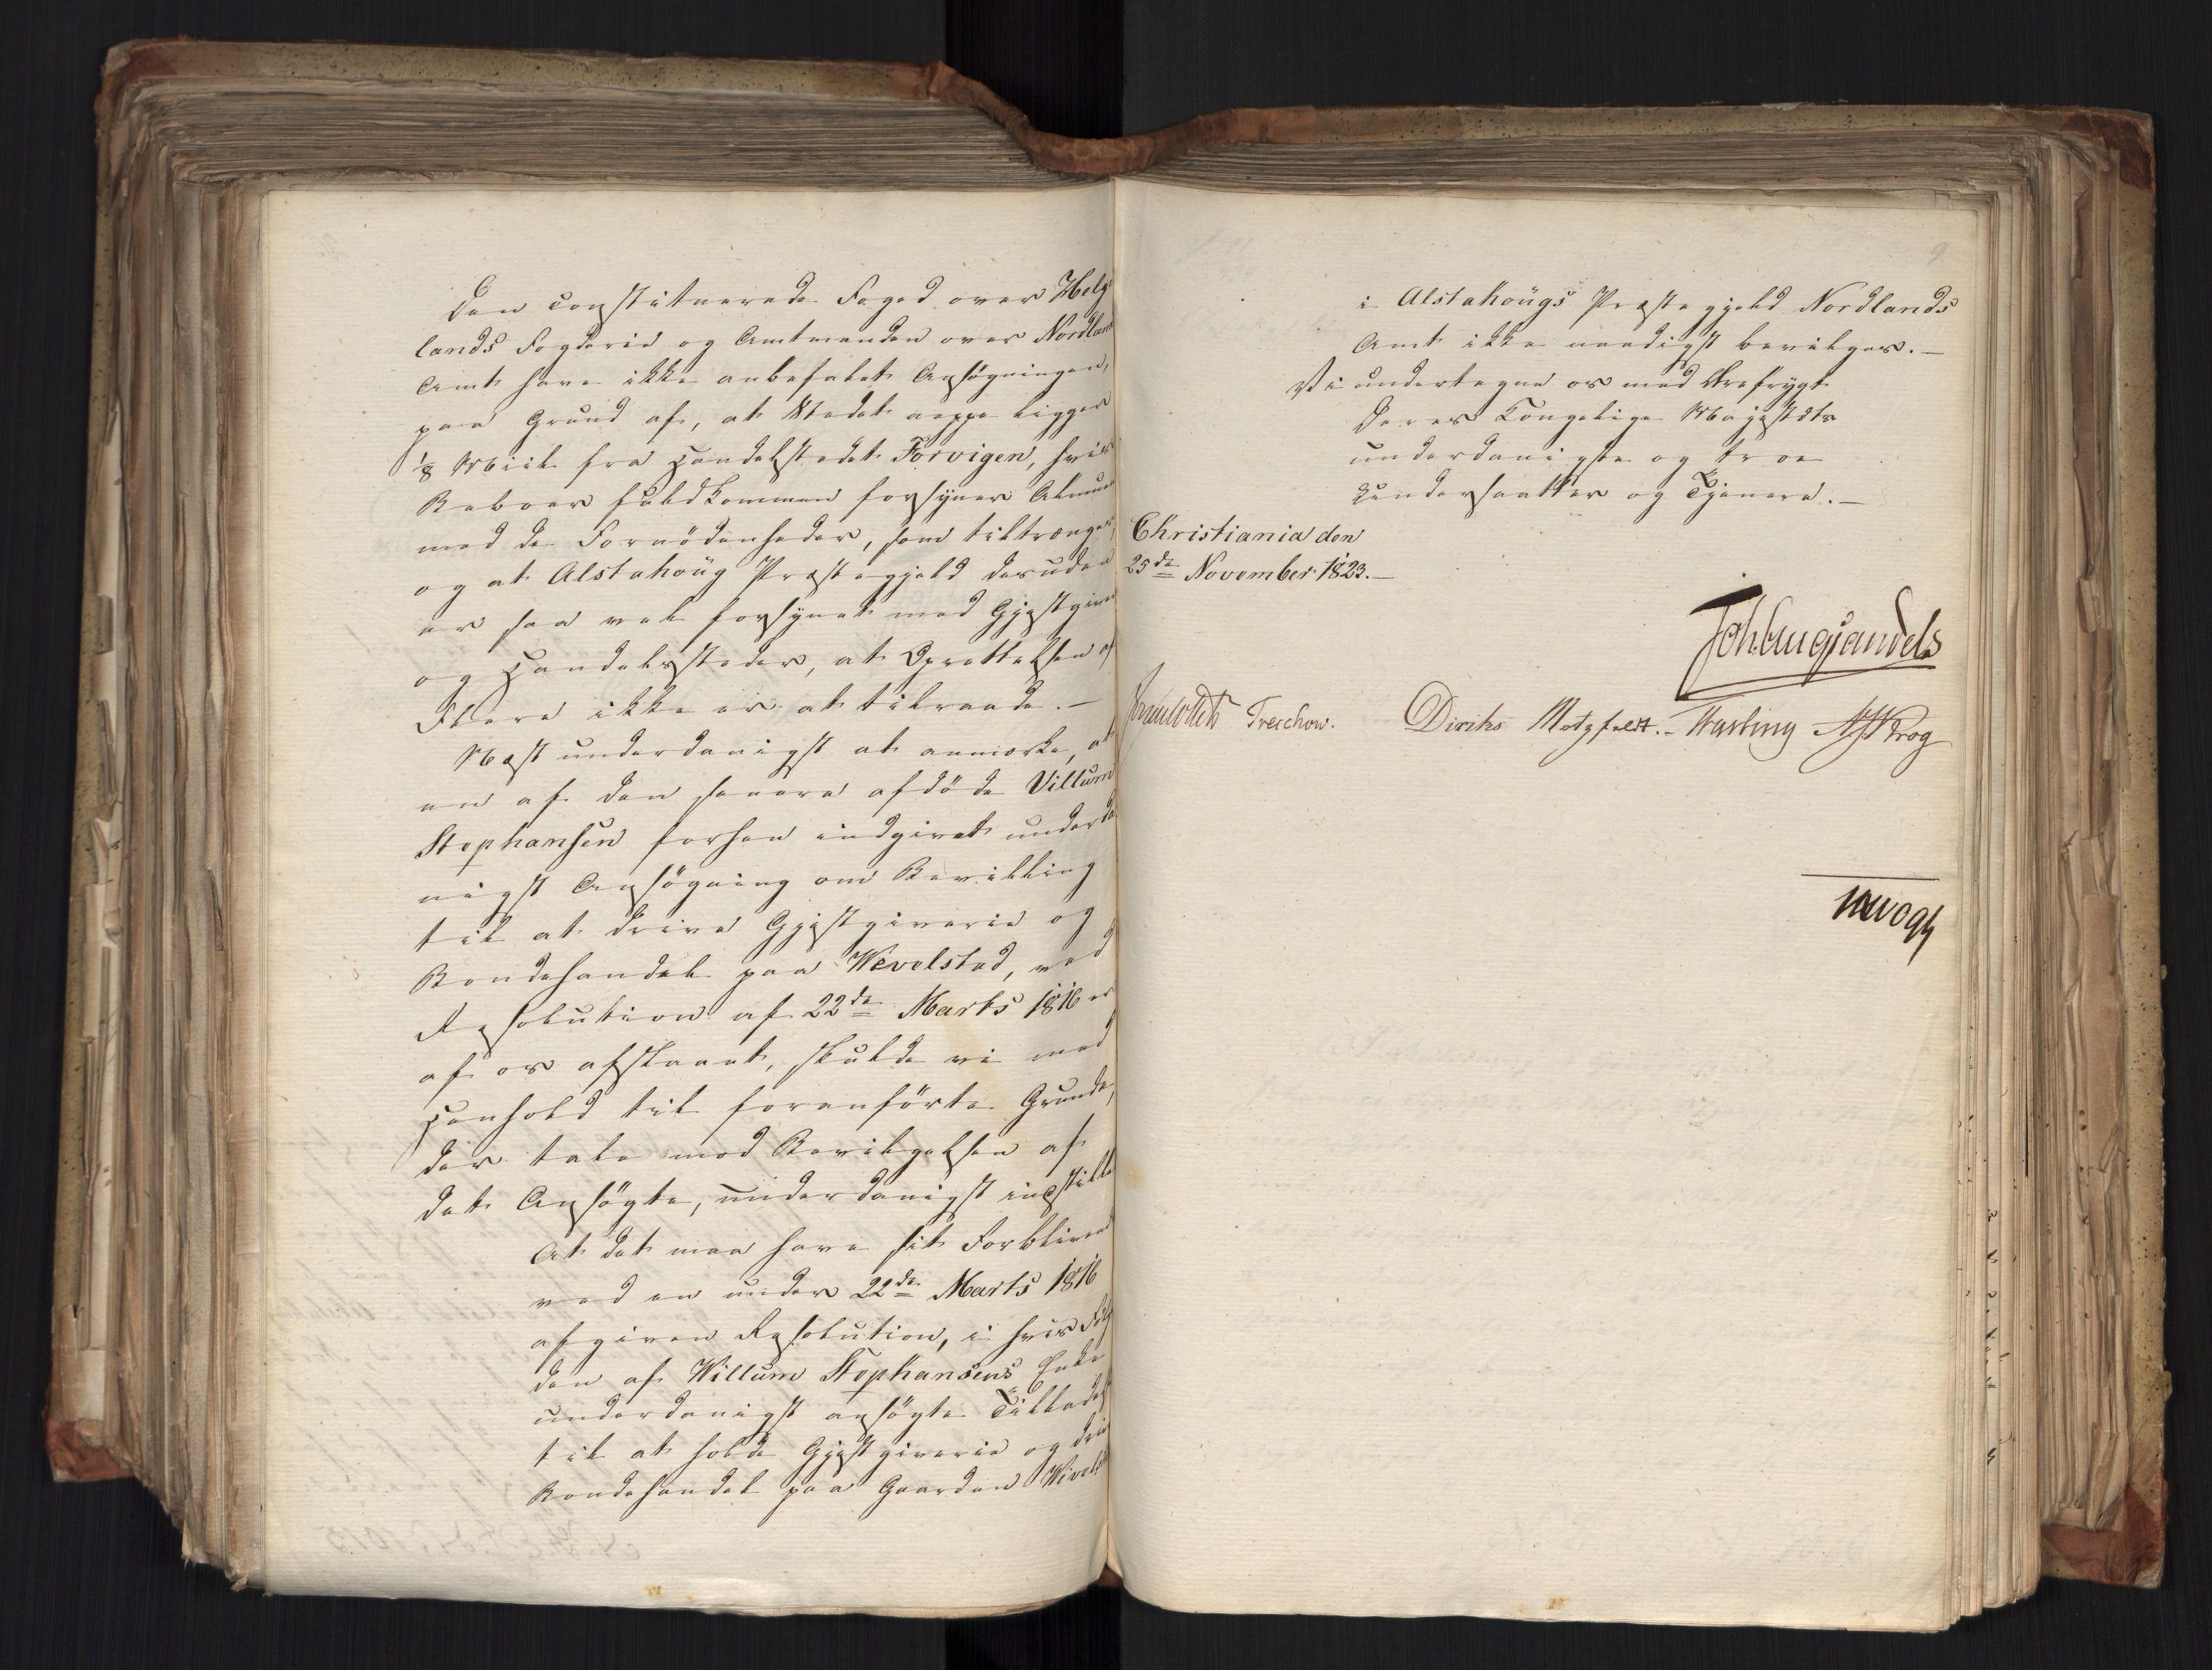 Den constituerede Foged over Helge
lands Fogderie og Amtmanden over Nordland
Amt have ikke anbefalet Ansøgningen,
paa Grund af, at Stedet neppe ligger
1/8 Miil fra Handelstedet Forvigen, hvis
Beboer fuldkommen forsyner Almue
med de Fornödenheder, som tiltrænges,
og at Alstahoug Præstegjeld desuden
er saa vel forsynet med Gjestgiver
og Handelssteder, at Oprettelsen af
Flere ikke er at tilraade. —
Næst underdanigst at anmærke, at
en af den senere afdöde Villum
Stephansen forhen indgivet underda
nigst Ansögning om Bevilling
til at drive Gjestgiverie og
Bondehandel paa Wevelstad, ved
Resolution af 22de Marts 1816 er
af os afslaaet, skulde vi med
Henhold til foranförte Grunde,
der tale mod Bevilgelsen af
det Ansögte, underdanigst indstille
At det maa have sit Forblivende
ved en under 22de Marts 1816
afgiven Resolution, i hvis Følge
den af Willum Stephansens Enke
underdanigst ansögte Tilladelse
til at holde Gjestgiverie og drive
Bondehandel paa Gaarden Wivelst
9
i Alstahougs Præstegjeld Nordlands
Amt ikke naadigst bevilges. —
Vi undertegne os med Ærefrygt
Deres Kongelige Majestæts
underdanigste og troe
Undersaatter og Tjenere. —
Christiania den
25de November 1823. —
Joh. Aug Sandels
Sommerfeldt Treschow. Diriks Motzfeldt. – Fasting A. Krog
Vogt